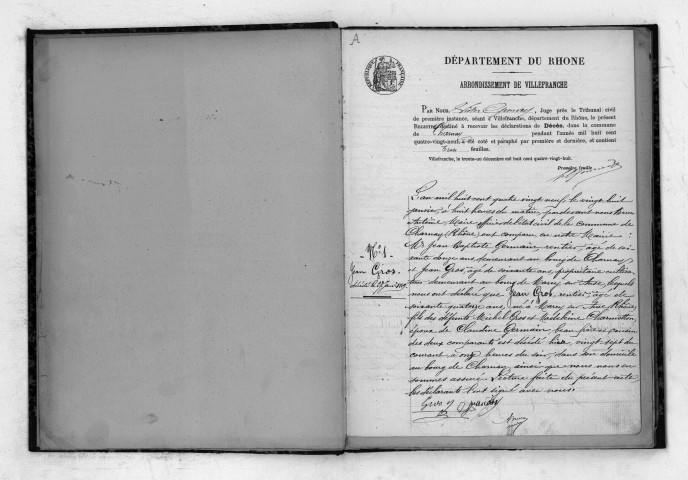 A
DÉPARTEMENT DU RHONE
ARRONDISSEMENT DE VILLEFRANCHE
PAR NOUS, Juge près le Tribunal civil
de première instance, séant à Villefranche, département du Rhône, le présent
REGISTRE destiné à recevoir les déclarations de Décès, dans la commune
de Charnay pendant l'année mil huit cent
quatre-vingt-neuf, a été coté et paraphé par première et dernière, et contient
feuilles.
Villefranche, le trente-un décembre mil huit cent quatre-vingt-huit.
Première feuille
L'an mil huit cent quatre vingt neuf le vingt huit
janvier, à huit heures du matin, pardevant nous
Antoine Maire officier de l'état civil de la commune de
Charnay (Rhône) ont comparu en notre Mairie
Mr Jean Baptiste Germain, rentier, âgé de soi-
xante douze ans, demeurant au bourg de Charnay
et Jean Gros, âgé de soixante ans, propriétaire cultiva-
teur demeurant au bourg de Marcy sur Anse, lesquels
nous ont déclaré que Jean Gros, rentier, âgé de
soixante quatorze ans, né à Marcy sur Anse Rhône,
fils des défunts Michel Gros et Madeleine
époux de Claudine Germain, beau frère et cousin
des deux comparants est décédé hier, vingt sept du
courant à onze heures du soir, dans son domicile
au bourg de Charnay, ainsi que nous nous en
sommes assuré. Lecture faite du présent acte
les déclarants l'ont signé avec nous.
Gros
No 1
Jean Gros